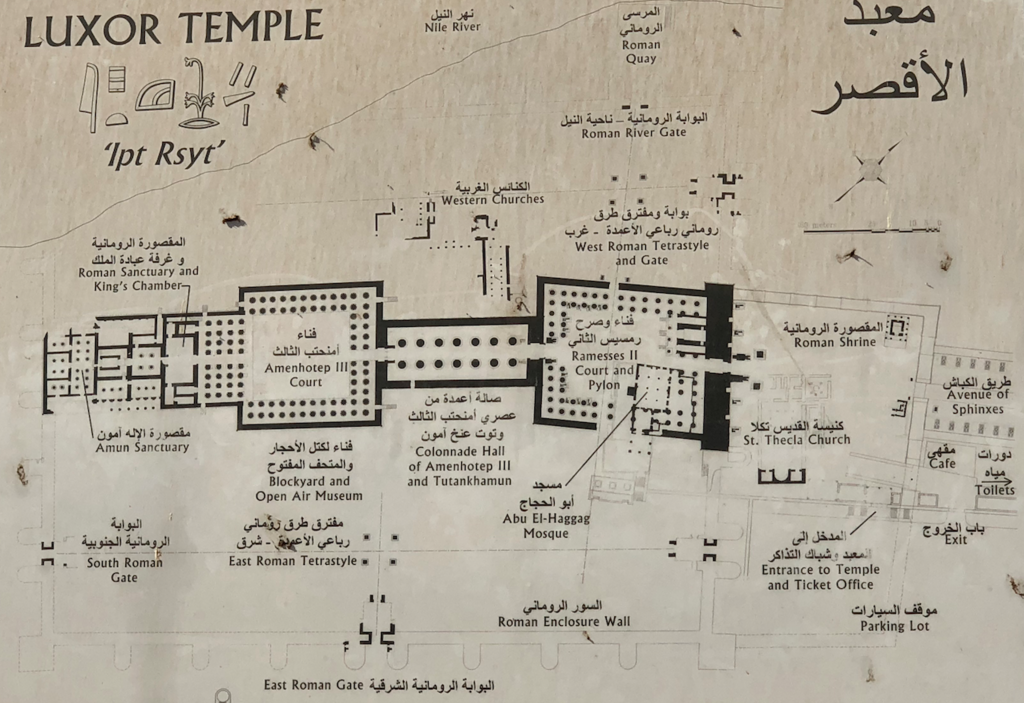 LUXOR TEMPLE
'Ipt Rsyt'
نهر النيل
Nile River
المرسى
الروماني
Roman
Quay
معبد
الأقصر
البوابة الرومانية – ناحية النيل
Roman River Gate
الكنائس الغربية
Western Churches
بوابة ومفترق طرق
روماني رباعي الأعمدة - غرب
West Roman Tetrastyle
and Gate
المقصورة الرومانية
و غرفة عبادة الملك
Roman Sanctuary and
King's Chamber
فناء
أمنحتب الثالث
Amenhotep III
Court
فناء وصرح
رمسيس الثاني
Ramesses II
Court and
Pylon
المقصورة الرومانية
Roman Shrine
طريق الكباش
Avenue of
Sphinxes
مقصورة الإله أمون
Amun Sanctuary
فناء لكتل الأحجار
والمتحف المفتوح
Blockyard and
Open Air Museum
صالة أعمدة من
عصري أمنحتب الثالث
وتوت عنخ أمون
Colonnade Hall
of Amenhotep III
and Tutankhamun
مسجد
أبو الحجاج
Abu El-Haggag
Mosque
كنيسة القديس تكلا
St. Thecla Church
مقهى
Cafe
دورات
مياه
Tollets
البوابة
الرومانية الجنوبية
South Roman
Gate
مفترق طرق روماني
رباعي الأعمدة - شرق
East Roman Tetrastyle
المدخل إلى
المعبد وشباك التذاكر
Entrance to Temple
and Ticket Office
باب الخروج
Exit
السور الروماني
Roman Enclosure Wall
موقف السيارات
Parking Lot
East Roman Gate البوابة الرومانية الشرقية